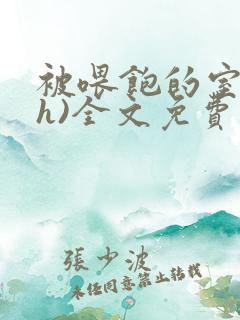 被喂飽的室
h)全文免費
張少波
未经同意禁止转载